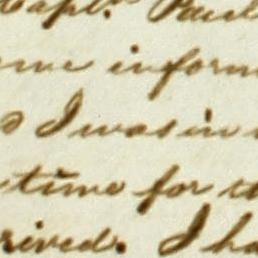 Capt. Paul
me inform
s I was in
time for it
rived. I ha